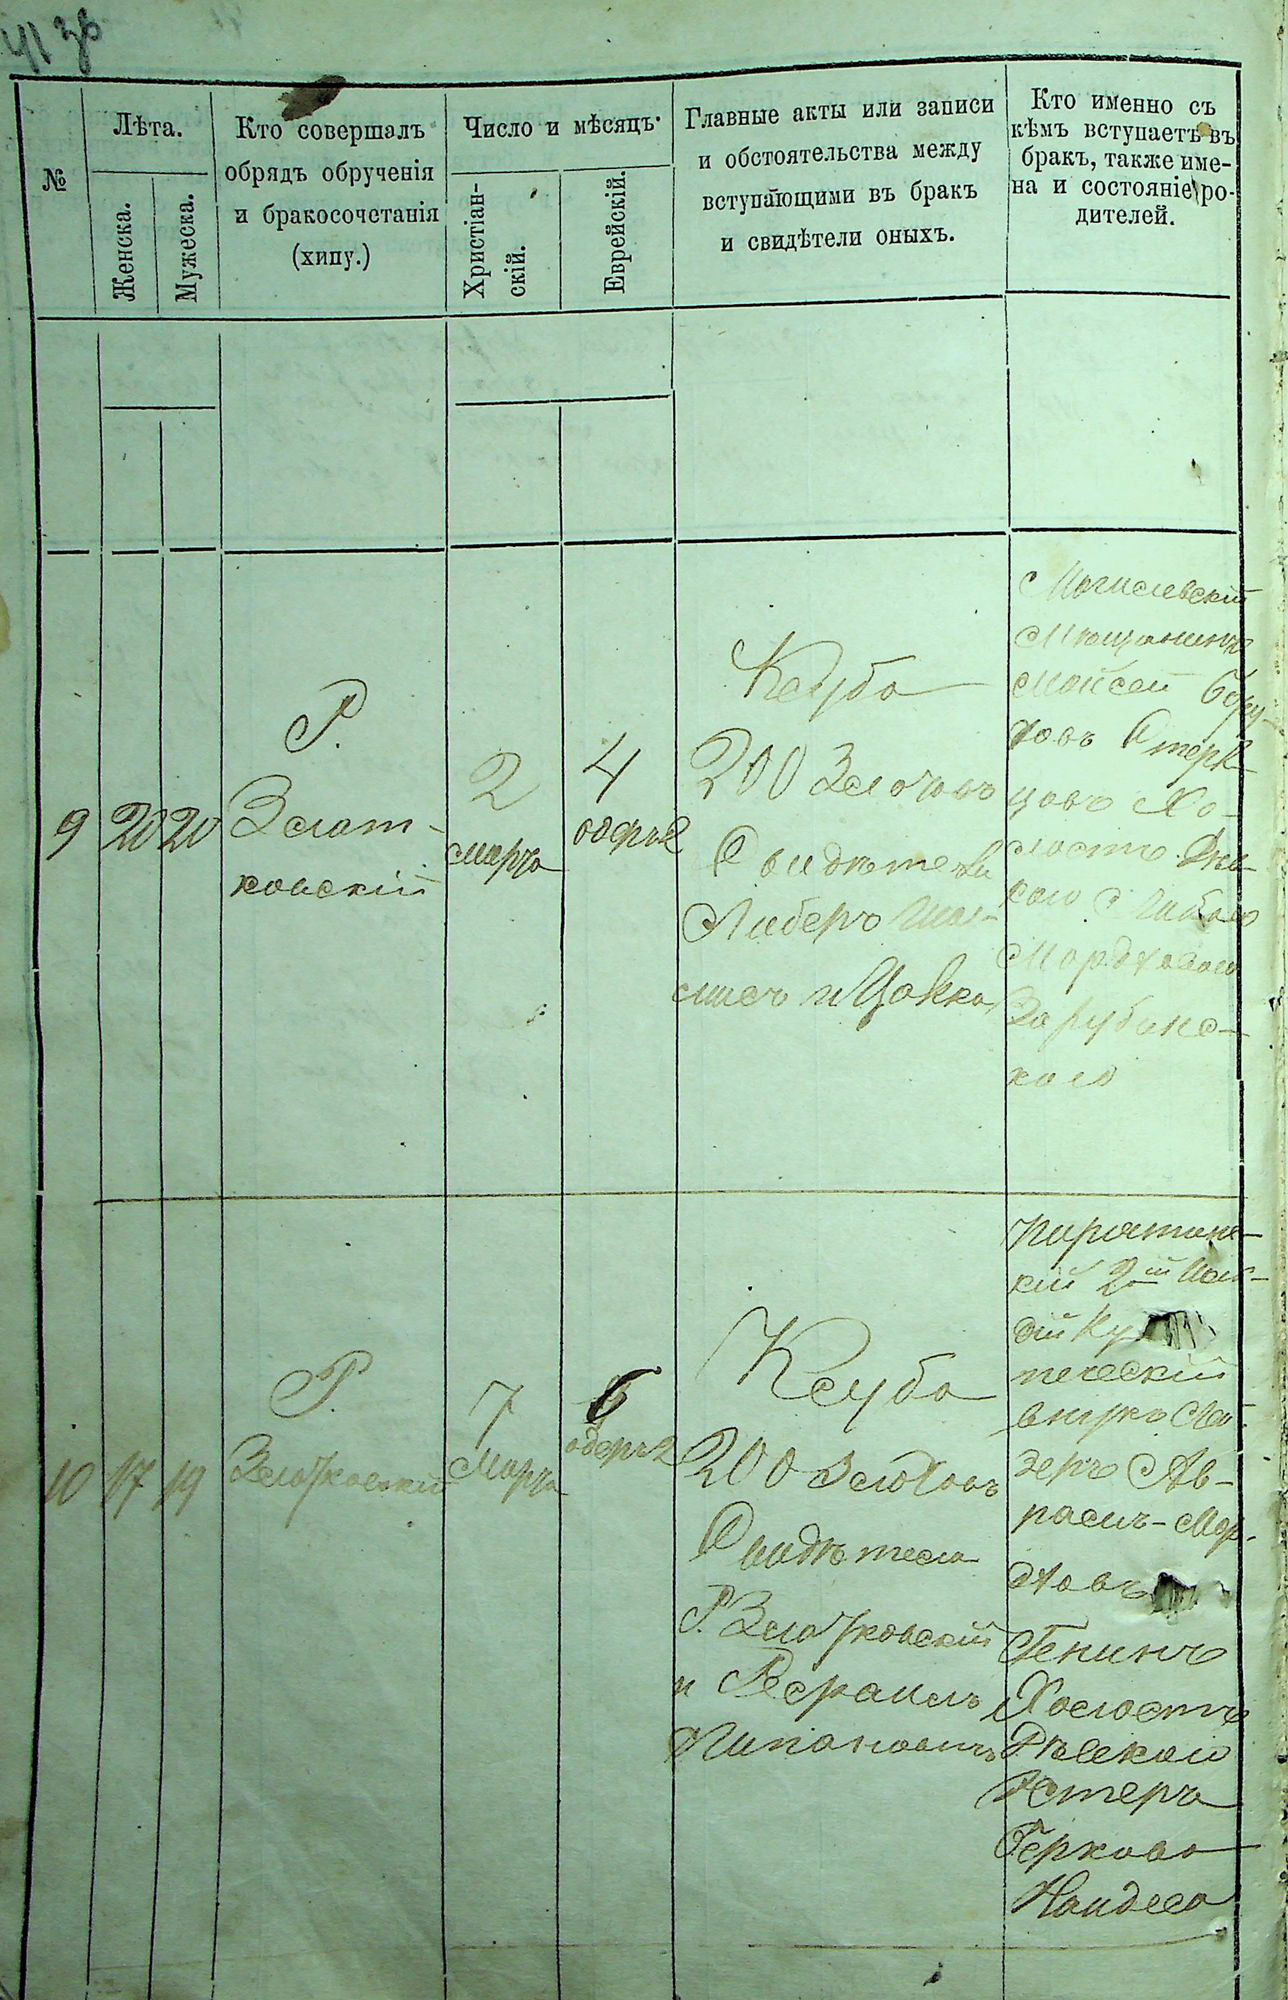 41 зв
№
Лѣта.
Женска.
Мужеска.
Кто совершалъ
обрядъ обрученія
и бракосочетанія
(хипу.)
Число и мѣсяцъ.
Христіан-
скій.
Еврейскій.
Главные акты или записи
и обстоятельства между
вступающими въ бракъ
и свидѣтели оныхъ.
Кто именно съ
кѣмъ вступаетъ въ
бракъ, также име-
на и состояніе ро-
дителей.
9
20
20
Р.
Злат-
ковскій
2
марта
4
одеръ 2
Ксуба
200 Злотовъ
Свидѣтели
Либеръ
и
Могилевскій
Мѣщанинъ
Мойсей Беру-
ховъ
Хо-
лостъ
Мордховою
Зарубинс-
кою
10
17
19
Р.
Златковскій
7
Марта
6
одеръ 2
Ксуба
200 Злотовъ
Свидѣтели
Р. Златковскій
и Есраилъ
Пирятинс-
кій 2й
Ку
печескій
внукъ Лей-
зеръ Аб-
рамъ-Мор-
дховъ
Генинъ
Холостъ
Эстеръ
Беркова